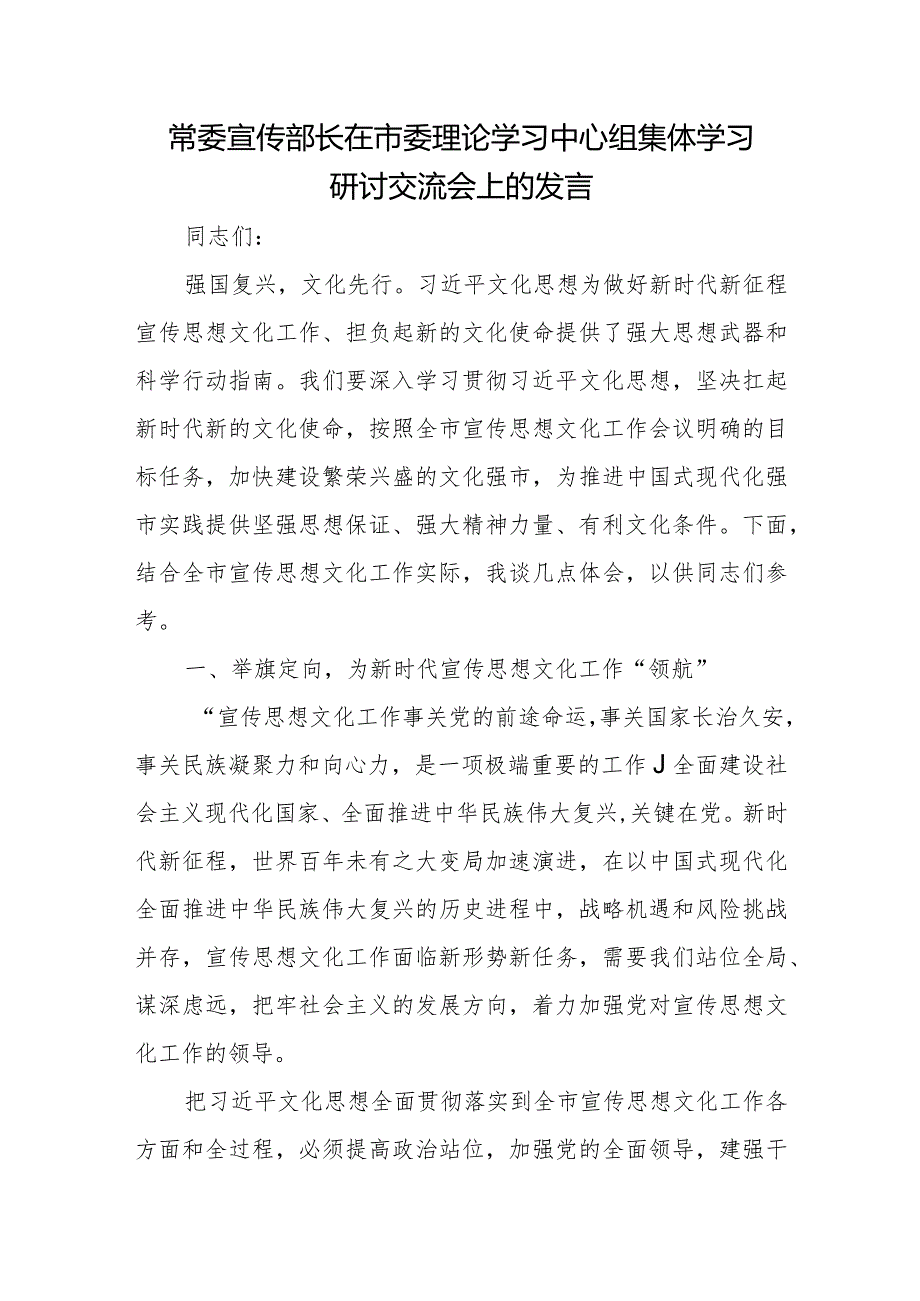 常委宣传部长在市委理论学习中心组集体学习
研讨交流会上的发言
同志们：
强国复兴，文化先行。习近平文化思想为做好新时代新征程
宣传思想文化工作、担负起新的文化使命提供了强大思想武器和
科学行动指南。我们要深入学习贯彻习近平文化思想，坚决扛起
新时代新的文化使命，按照全市宣传思想文化工作会议明确的目
标任务，加快建设繁荣兴盛的文化强市，为推进中国式现代化强
市实践提供坚强思想保证、强大精神力量、有利文化条件。下面，
结合全市宣传思想文化工作实际，我谈几点体会，以供同志们参
考。
一、举旗定向，为新时代宣传思想文化工作“领航”
“宣传思想文化工作事关党的前途命运，事关国家长治久安，
事关民族凝聚力和向心力，是一项极端重要的工作J全面建设社
会主义现代化国家、全面推进中华民族伟大复兴,关键在党。新时
代新征程，世界百年未有之大变局加速演进，在以中国式现代化
全面推进中华民族伟大复兴的历史进程中，战略机遇和风险挑战
并存，宣传思想文化工作面临新形势新任务，需要我们站位全局、
谋深虑远，把牢社会主义的发展方向，着力加强党对宣传思想文
化工作的领导。
把习近平文化思想全面贯彻落实到全市宣传思想文化工作各
方面和全过程，必须提高政治站位，加强党的全面领导，建强干